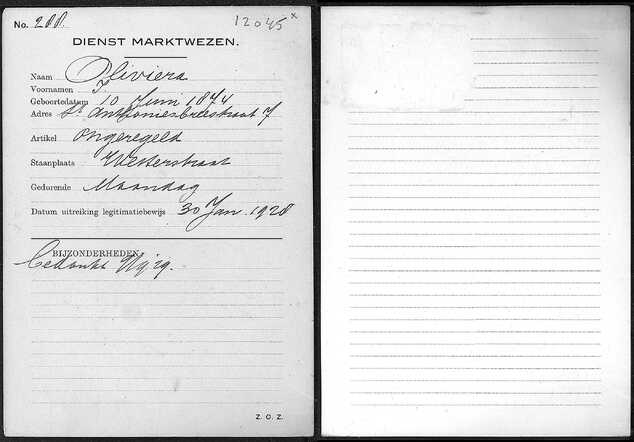 No. 288. 12045 x
DIENST MARKTWEZEN.
Naam Oliviera
Voornamen I.
Geboortedatum 10 Juni 1874
Adres St. Anthoniesbreestraat 7
Artikel Ongeregeld
Standplaats Westerstraat
Gedurende Maandag
Datum uitreiking legitimatiebewijs 30 Jan. 1928
BIJZONDERHEDEN
Bedankt
Z. O. Z.